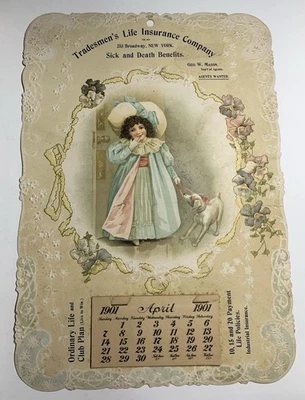 Tradesmen's Life Insurance Company
253 Broadway, NEW YORK.
Sick and Death Benefits.
Geo. W. Mason,
AGENTS WANTED.
Ordinary Life and
Club Plan
10, 15 and 20 Payment
Life Policies.
Industrial Insurance.
1901 April 1901
Sunday Monday Tuesday Wednesday Thursday Friday Saturday
1 2 3 4 5 6
7 8 9 10 11 12 13
14 15 16 17 18 19 20
21 22 23 24 25 26 27
28 29 30